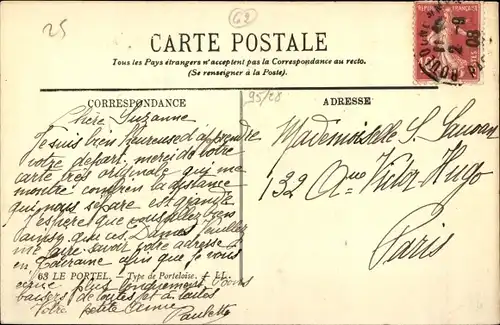 25
62
CARTE POSTALE
Tous les Pays étrangers n'acceptent pas la Correspondance au recto.
(Se renseigner à la Poste).
CORRESPONDANCE
95/28
ADRESSE
Chère Suzanne
Je suis bien heureuse d'apprendre
votre départ, merci de votre
carte très originale qui me
montre combien la distance
qui nous sépare est grande
J'espère que vous allez bien
ainsi que ces Dames. Veuillez
me faire savoir votre adresse
en Touraine afin que je vous
63 LE PORTEL. — Type de Porteloise. — LL.
plus longuement. Bons
baisers de toutes et à toutes
Votre petite amie
Paulette
Mademoiselle S.
132 Ave Victor Hugo
Paris
REPUBLIQUE FRANÇAISE
2 - 9
08